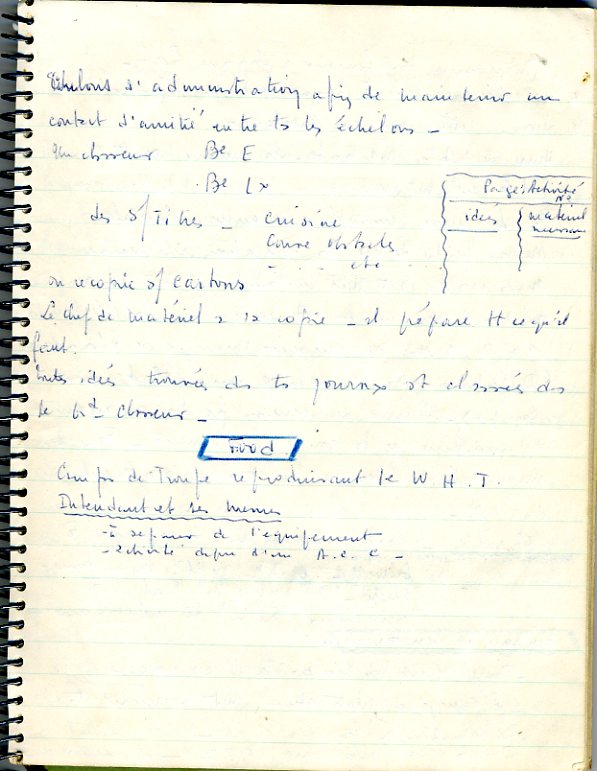 Echelons d'administration afin de maintenir un
contact d'amitié entre ts les Echelons -
Un classeur Be E
Be Lx
Page: Activité No
idées matériel
des s/Titres - cuisine
Course obstacles
- - - etc
on recopie s/ cartons
Le chef de matériel a sa copie - il prépare tt ce qu'il
faut.
toutes idées trouvées ds ts journaux st classées ds
le gd classeur -
Food
Camps de Troupe reproduisant le W. H. T.
Intendant et ses menus
- à séparer de l'équipement
- activité d'un A.C.C -